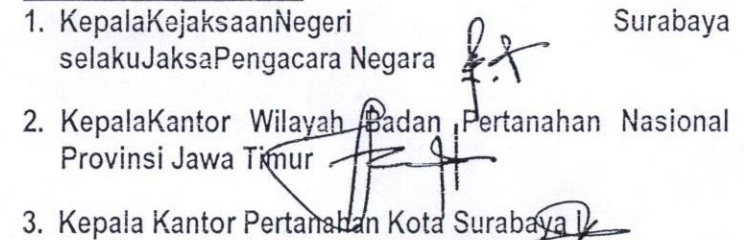 1. KepalaKejaksaanNegeri Surabaya
selakuJaksaPengacara Negara
2. KepalaKantor Wilayah Badan Pertanahan Nasional
Provinsi Jawa Timur
3. Kepala Kantor Pertanahan Kota Surabaya I